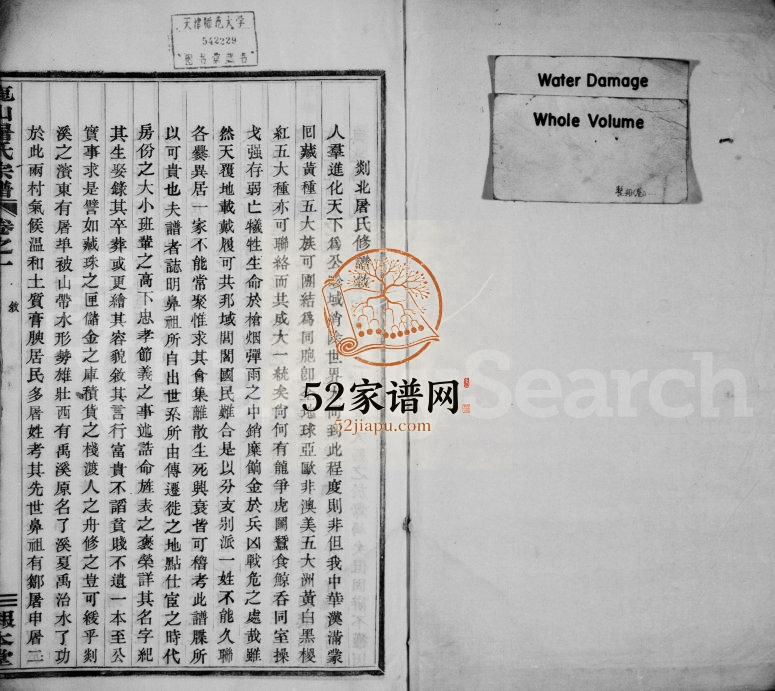 天津師范大學
542229
圖書館藏書
Water Damage
Whole Volume
剡北屠氏修譜敘
人羣進化天下為公 域消 世界 何到此程度則非但我中華漢滿蒙
回藏黃種五大族可團結為同胞即 球亞歐非澳美五大洲黃白黑棕
紅五大種亦可聯絡而共成大一統矣向何有龍爭虎鬭蠶食鯨吞同室操
戈强存弱亡犧牲生命於槍烟彈雨之中銷糜餉金於兵凶戰危之處哉雖
然天覆地載戴履可共那域閭閻國民難合是以分支別派一姓不能久聯
各爨異居一家不能常聚惟求其會集離散生死興衰皆可稽考此譜牒所
以可貴也夫譜者誌明鼻祖所自出世系所由傳遷徙之地點仕宦之時代
房份之大小班輩之高下忠孝節義之事述誥命旌表之褒榮詳其名字紀
其生娶錄其卒葬或更繪其容貌敘其言行富貴不謟貧賤不遺一本至公
實事求是譬如藏珠之匣儲金之庫積貨之棧渡人之舟修之豈可緩乎剡
溪之濱東有屠垏被山帶水形勢雄壯西有禹溪原名了溪夏禹治水了功
於此兩村氣候溫和土質膏腴居民多屠姓考其先世鼻祖有鄒屠申屠二
山屠氏宗譜
卷之一
敘
報本堂
52家谱网
52jiapu.com
Search